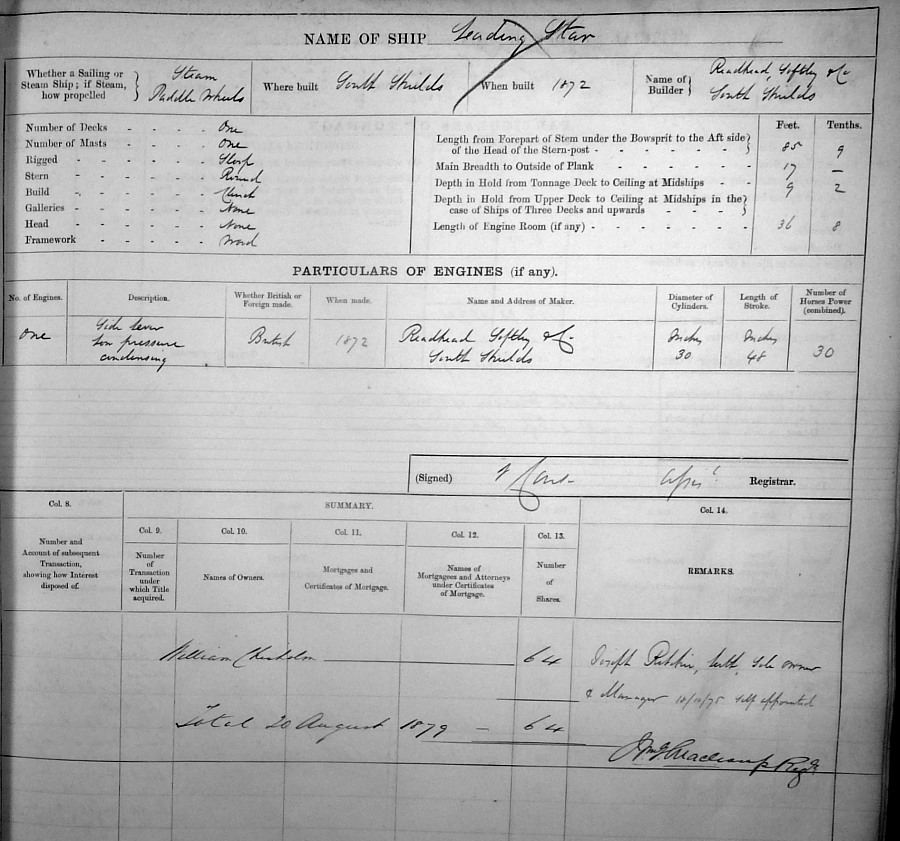 NAME OF SHIP Leading Star
Whether a Sailing or Steam Ship; if Steam, how propelled } Steam Paddle Wheels
Where built South Shields
When built 1872
Name of Builder } Readhead, Softley & Co South Shields
Number of Decks - - - - One
Number of Masts - - - - One
Rigged - - - - - Sloop
Stern - - - - - Round
Build - - - - - Clinch
Galleries - - - - - None
Head - - - - - None
Framework - - - - - Wood
Feet. Tenths.
Length from Forepart of Stem under the Bowsprit to the Aft side
of the Head of the Stern-post - - - - - } 85 9
Main Breadth to Outside of Plank - - - - - - 17 —
Depth in Hold from Tonnage Deck to Ceiling at Midships - - 9 2
Depth in Hold from Upper Deck to Ceiling at Midships in the
case of Ships of Three Decks and upwards - - - - }
Length of Engine Room (if any) - - - - - - - 36 8
PARTICULARS OF ENGINES (if any).
No. of Engines. Description. Whether British or Foreign made. When made. Name and Address of Maker. Diameter of Cylinders. Length of Stroke. Number of Horses Power (combined).
One Side lever low pressure condensing British 1872 Readhead Softley & Co South Shields Inches 30 Inches 48 30
(Signed) Registrar.
Col. 8. SUMMARY. Col. 14.
Col. 9. Col. 10. Col. 11. Col. 12. Col. 13.
Number and Account of subsequent Transaction, showing how Interest disposed of.
Number of Transaction under which Title acquired.
Names of Owners.
Mortgages and Certificates of Mortgage.
Names of Mortgagees and Attorneys under Certificates of Mortgage.
Number of Shares.
REMARKS.
William Chisholm 64
Joseph Leith, Sole owner
& Manager self appointed
Total 20 August 1879 — 64
Regr